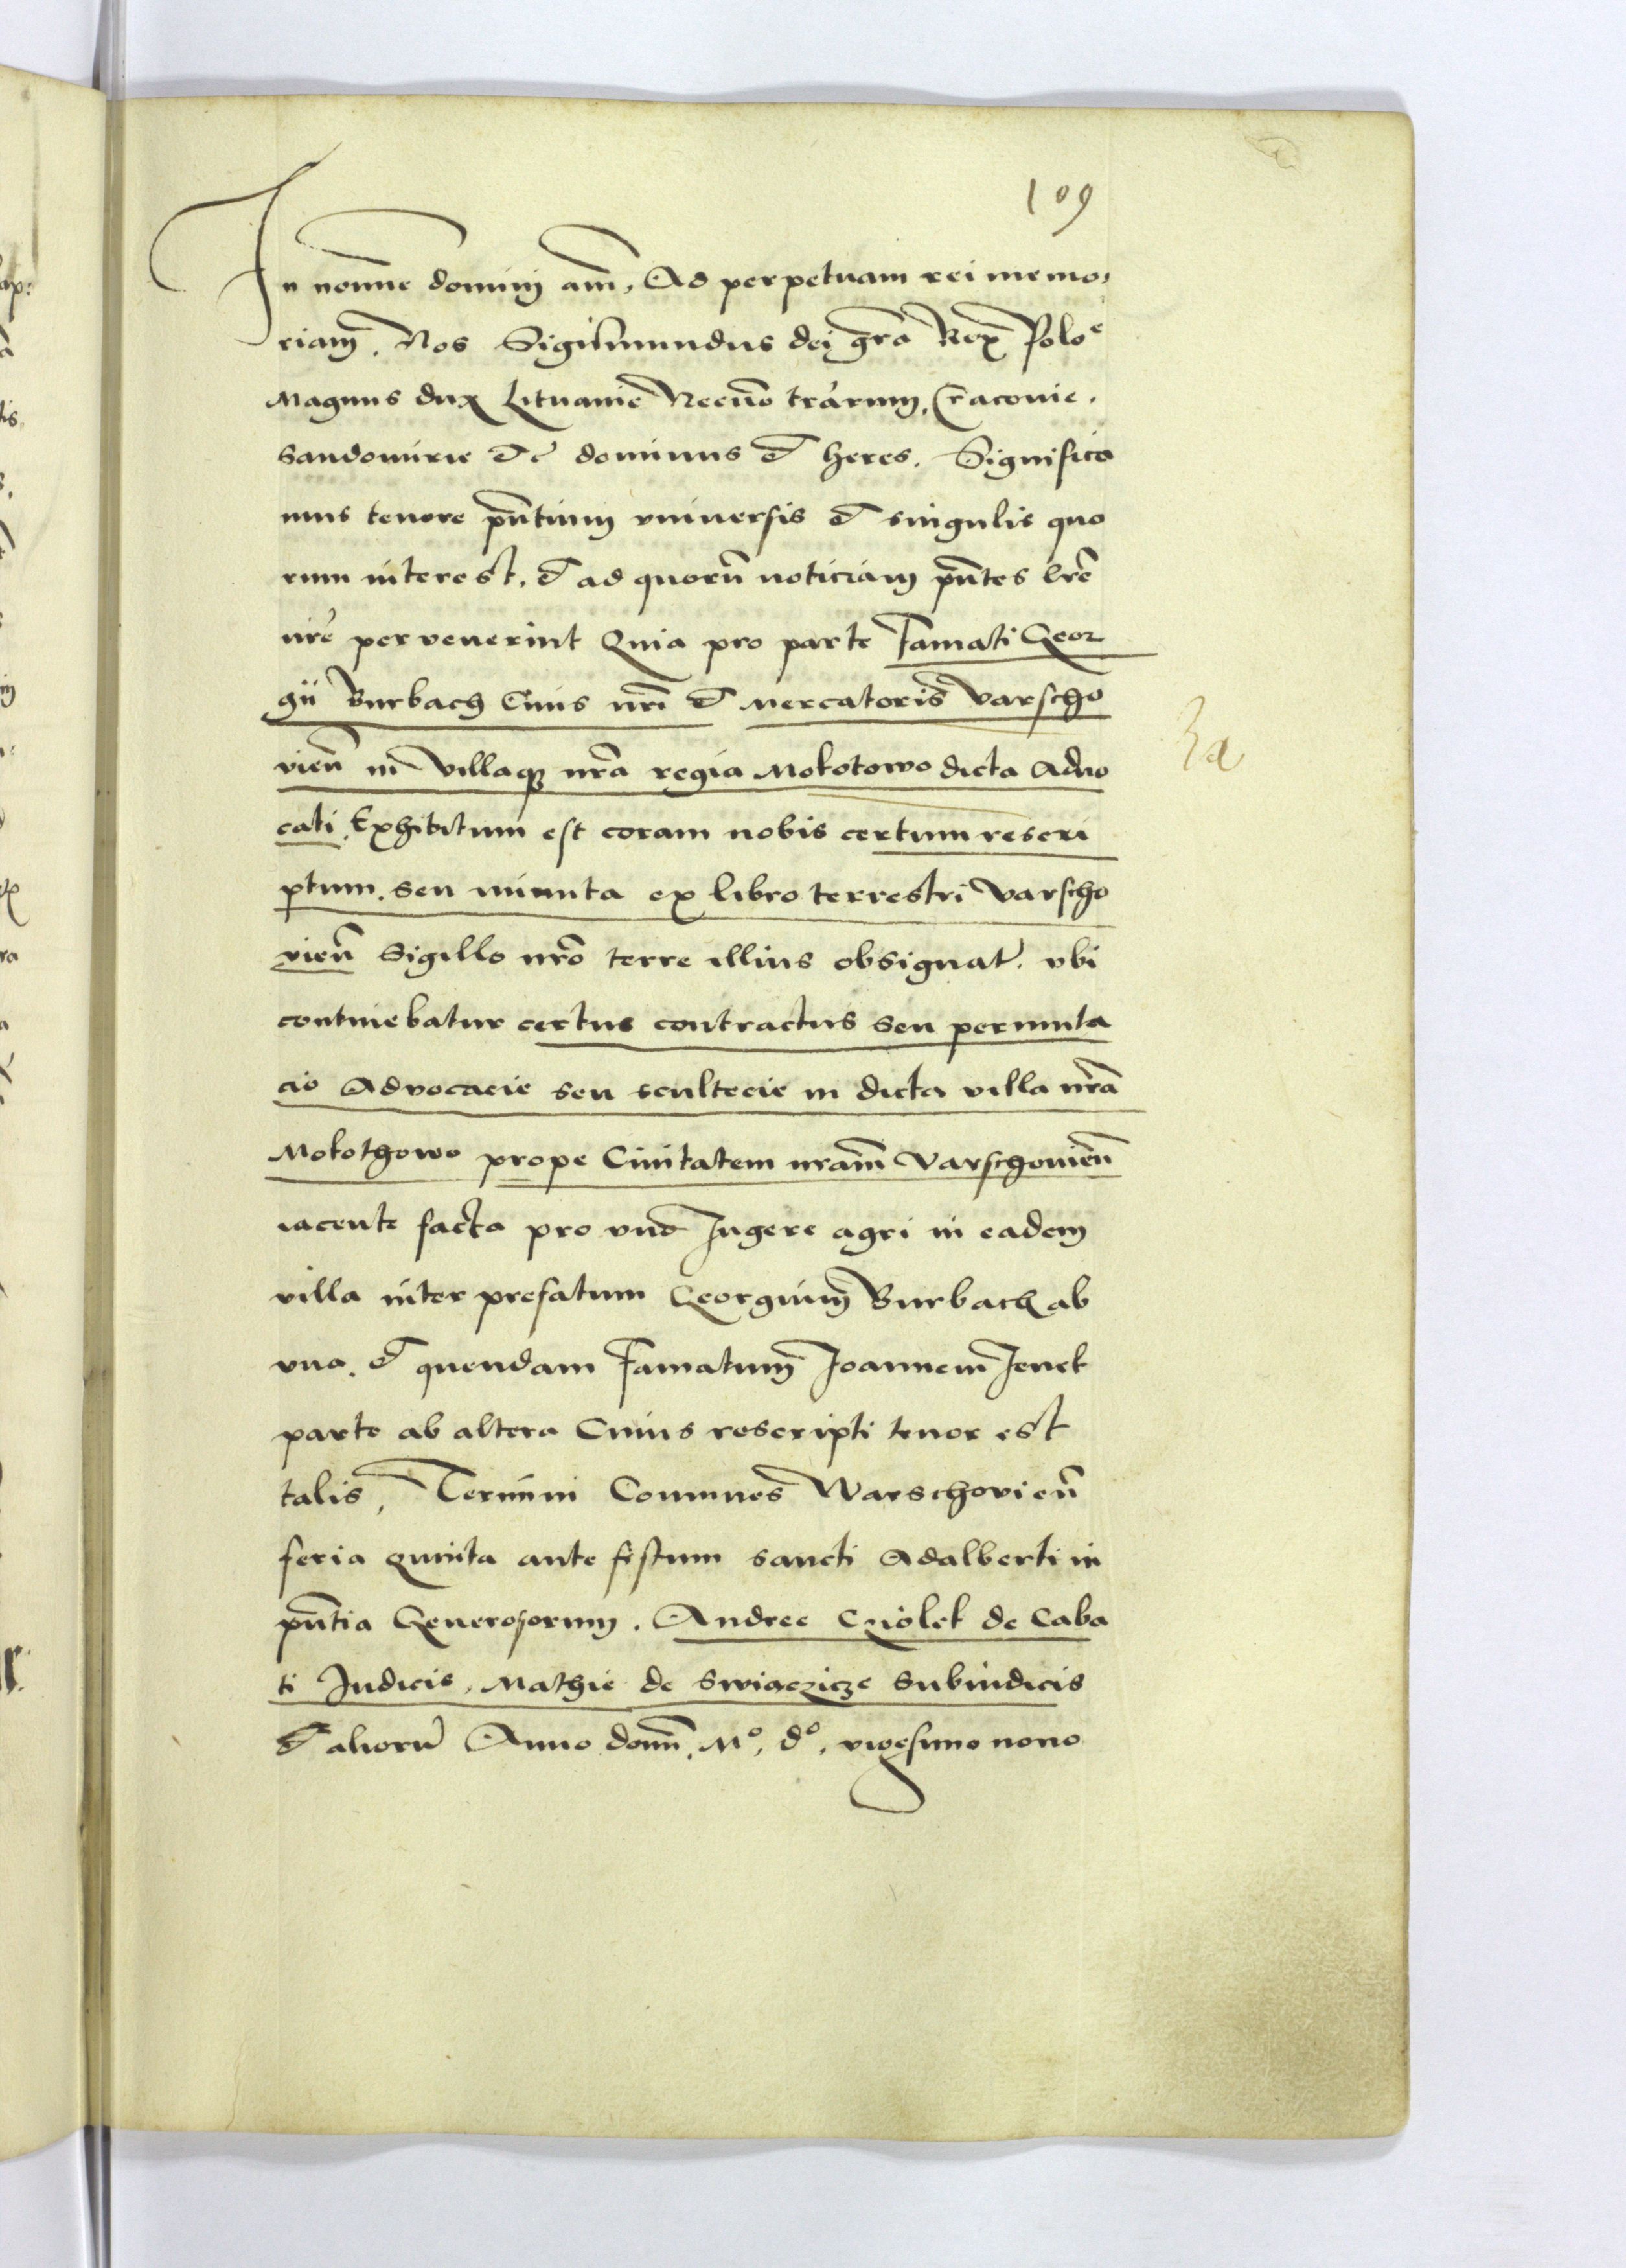 109
In nomine domini am̃, Ad perpetuam rei memo,
riam, Nos Sigismundus dei gr̃a Rex Poloᵉ
Magnus dux Lituanie Necno trarum, Cracouie.
Sandomirie et c̃ dominus et heres. Significa
mus tenore pñtium vniuersis et singulis quo
rum interest, et ad quorũ noticiam pñtes lr̃e
nr̃e pervenerint Quia pro parte Famati Geor
gii Burbach Ciuis nr̃i et Mercatoris Varscho
vieñ in Villaqꝫ nr̃a regia Mokotowo dicta Aduo
cati, Exhibitum est coram nobis certum rescri
ptum, seu minuta ex libro terrestri Varscho
vieñ Sigillo nr̃o terre illius obsignat̃. vbi
continebatur certus contractus seu permuta
cio Advocacie seu scultecie in dicta villa nr̃a
Mokothowo prope Ciuitatem nr̃am Varschouieñ
iacente facta pro vno Iugere agri in eadem
villa inter prefatum Georgium Burbach ab
vna, et quendam Famatum Joannem Jenek
parte ab altera Cuius rescripti tenor est
talis, Termini Comunes Warschovieñ
feria quinta ante festum sancti Adalberti in
pñtia Generosorum, Andree Cziolek de Caba
ti Judicis, Mathie de Swiaczicze Subiudicis
et aliorũ Anno domi̇̃, Mº, dº, vigesimo nono